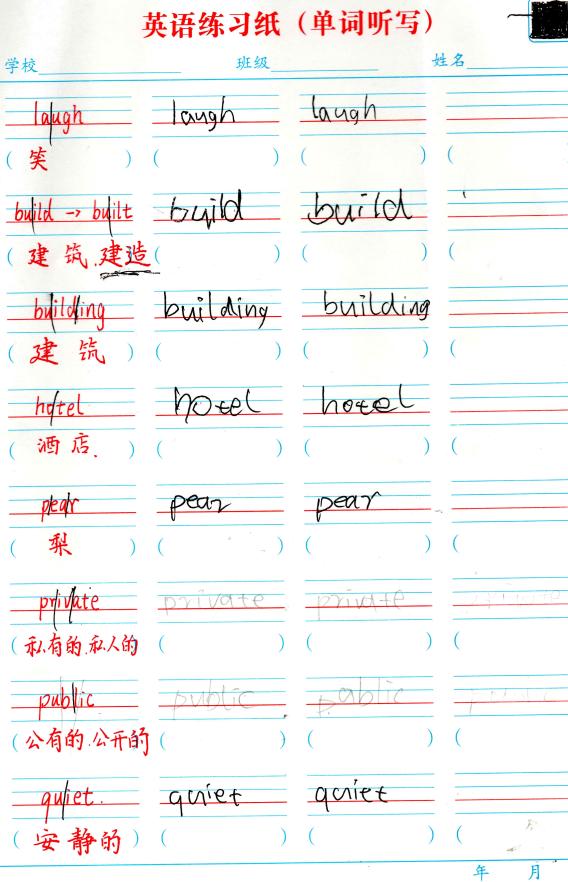 英语练习纸（单词听写）
学校 班级 姓名
laugh laugh laugh
( 笑 ) ( ) ( ) (
build → built build build
( 建筑.建造 ( ) ( ) (
building building building
( 建筑 ) ( ) ( ) (
hotel hotel hotel
( 酒店. ) ( ) ( ) (
pear pear pear
( 梨 ) ( ) ( ) (
private private private private
( 私有的.私人的 ( ) ( ) (
public public public
( 公有的.公开的 ( ) ( ) (
quiet. quiet quiet
( 安静的 ) ( ) ( ) (
年 月